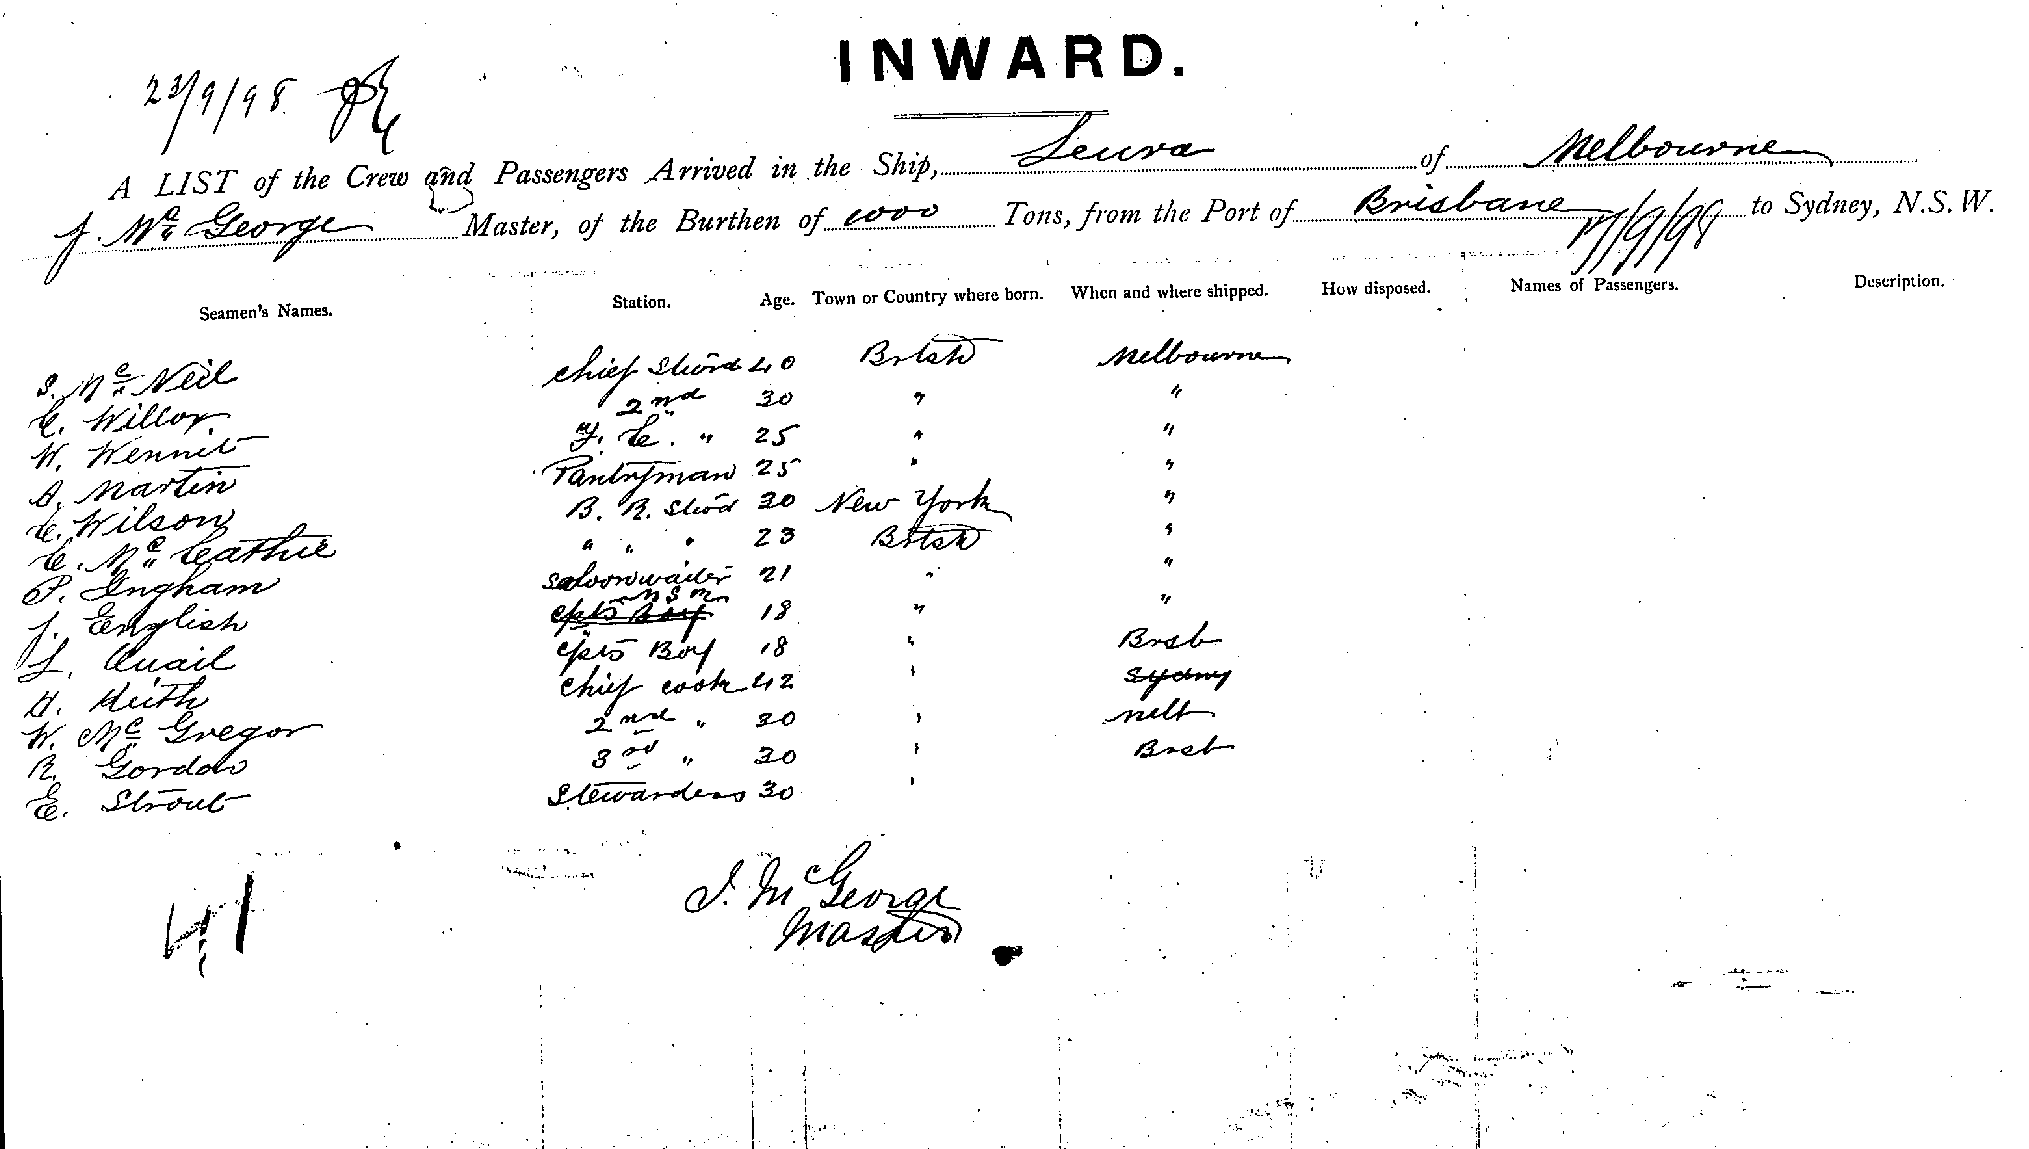 INWARD.
23/9/98
A LIST of the Crew and Passengers Arrived in the Ship, Leura of Melbourne
J. McGeorge Master, of the Burthen of 1000 Tons, from the Port of Brisbane /9/98 to Sydney, N.S.W.
Seamen's Names. Station. Age. Town or Country where born. When and where shipped. How disposed. Names of Passengers. Description.
S. McNeil Chief Stwd 40 Brtsh Melbourne
C. Willor 2nd 30 " "
W. Wennit F. C. " 25 " "
A. Martin Pantryman 25 " "
C. Wilson B. R. Stwd 30 New York "
C. McCathie " " " 23 Brtsh "
P. Ingham Saloonwaiter 21 " "
J. English M S Rm 18 " "
L. Quail Cpts Boy 18 " Brsb
A. Keith Chief cook 42 " Sydny
W. McGregor 2nd " 30 " Melb
R. Gordon 3rd " 30 " Brsb
E. Strout Stewardess 30 "
J. McGeorge
Master
41